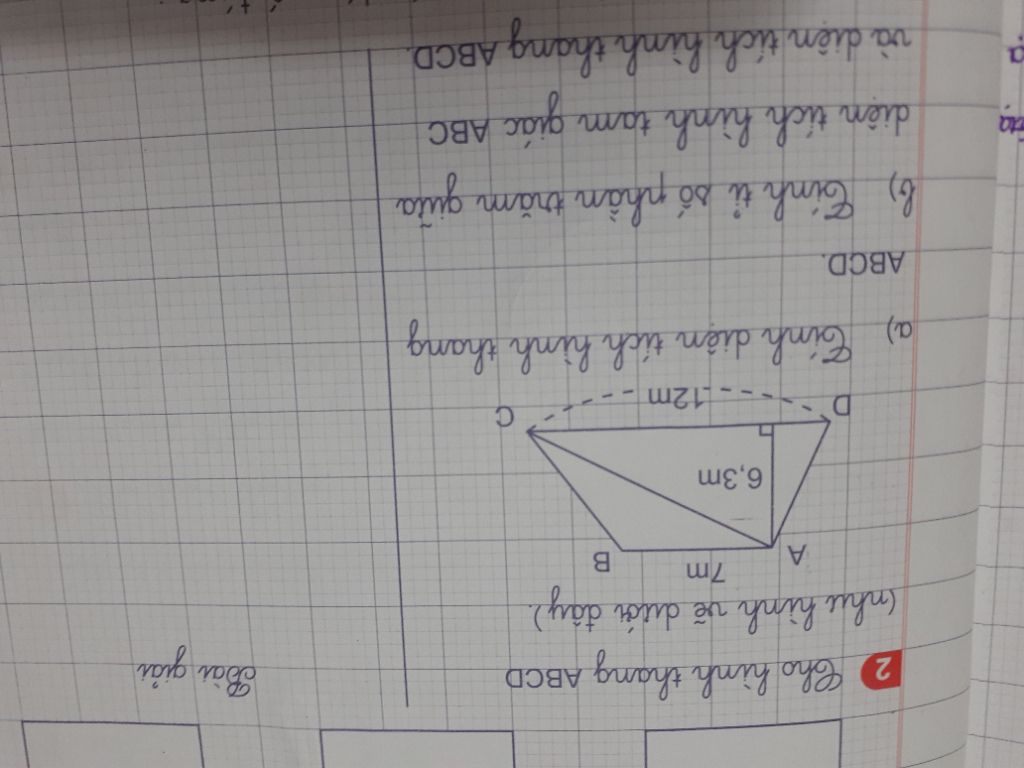 2 Cho hình thang ABCD
(như hình vẽ dưới đây).
7m
A
B
6,3m
D
12m
C
a) Tính diện tích hình thang
ABCD.
b) Tính tỉ số phần trăm giữa
diện tích hình tam giác ABC
và diện tích hình thang ABCD.
Bài giải